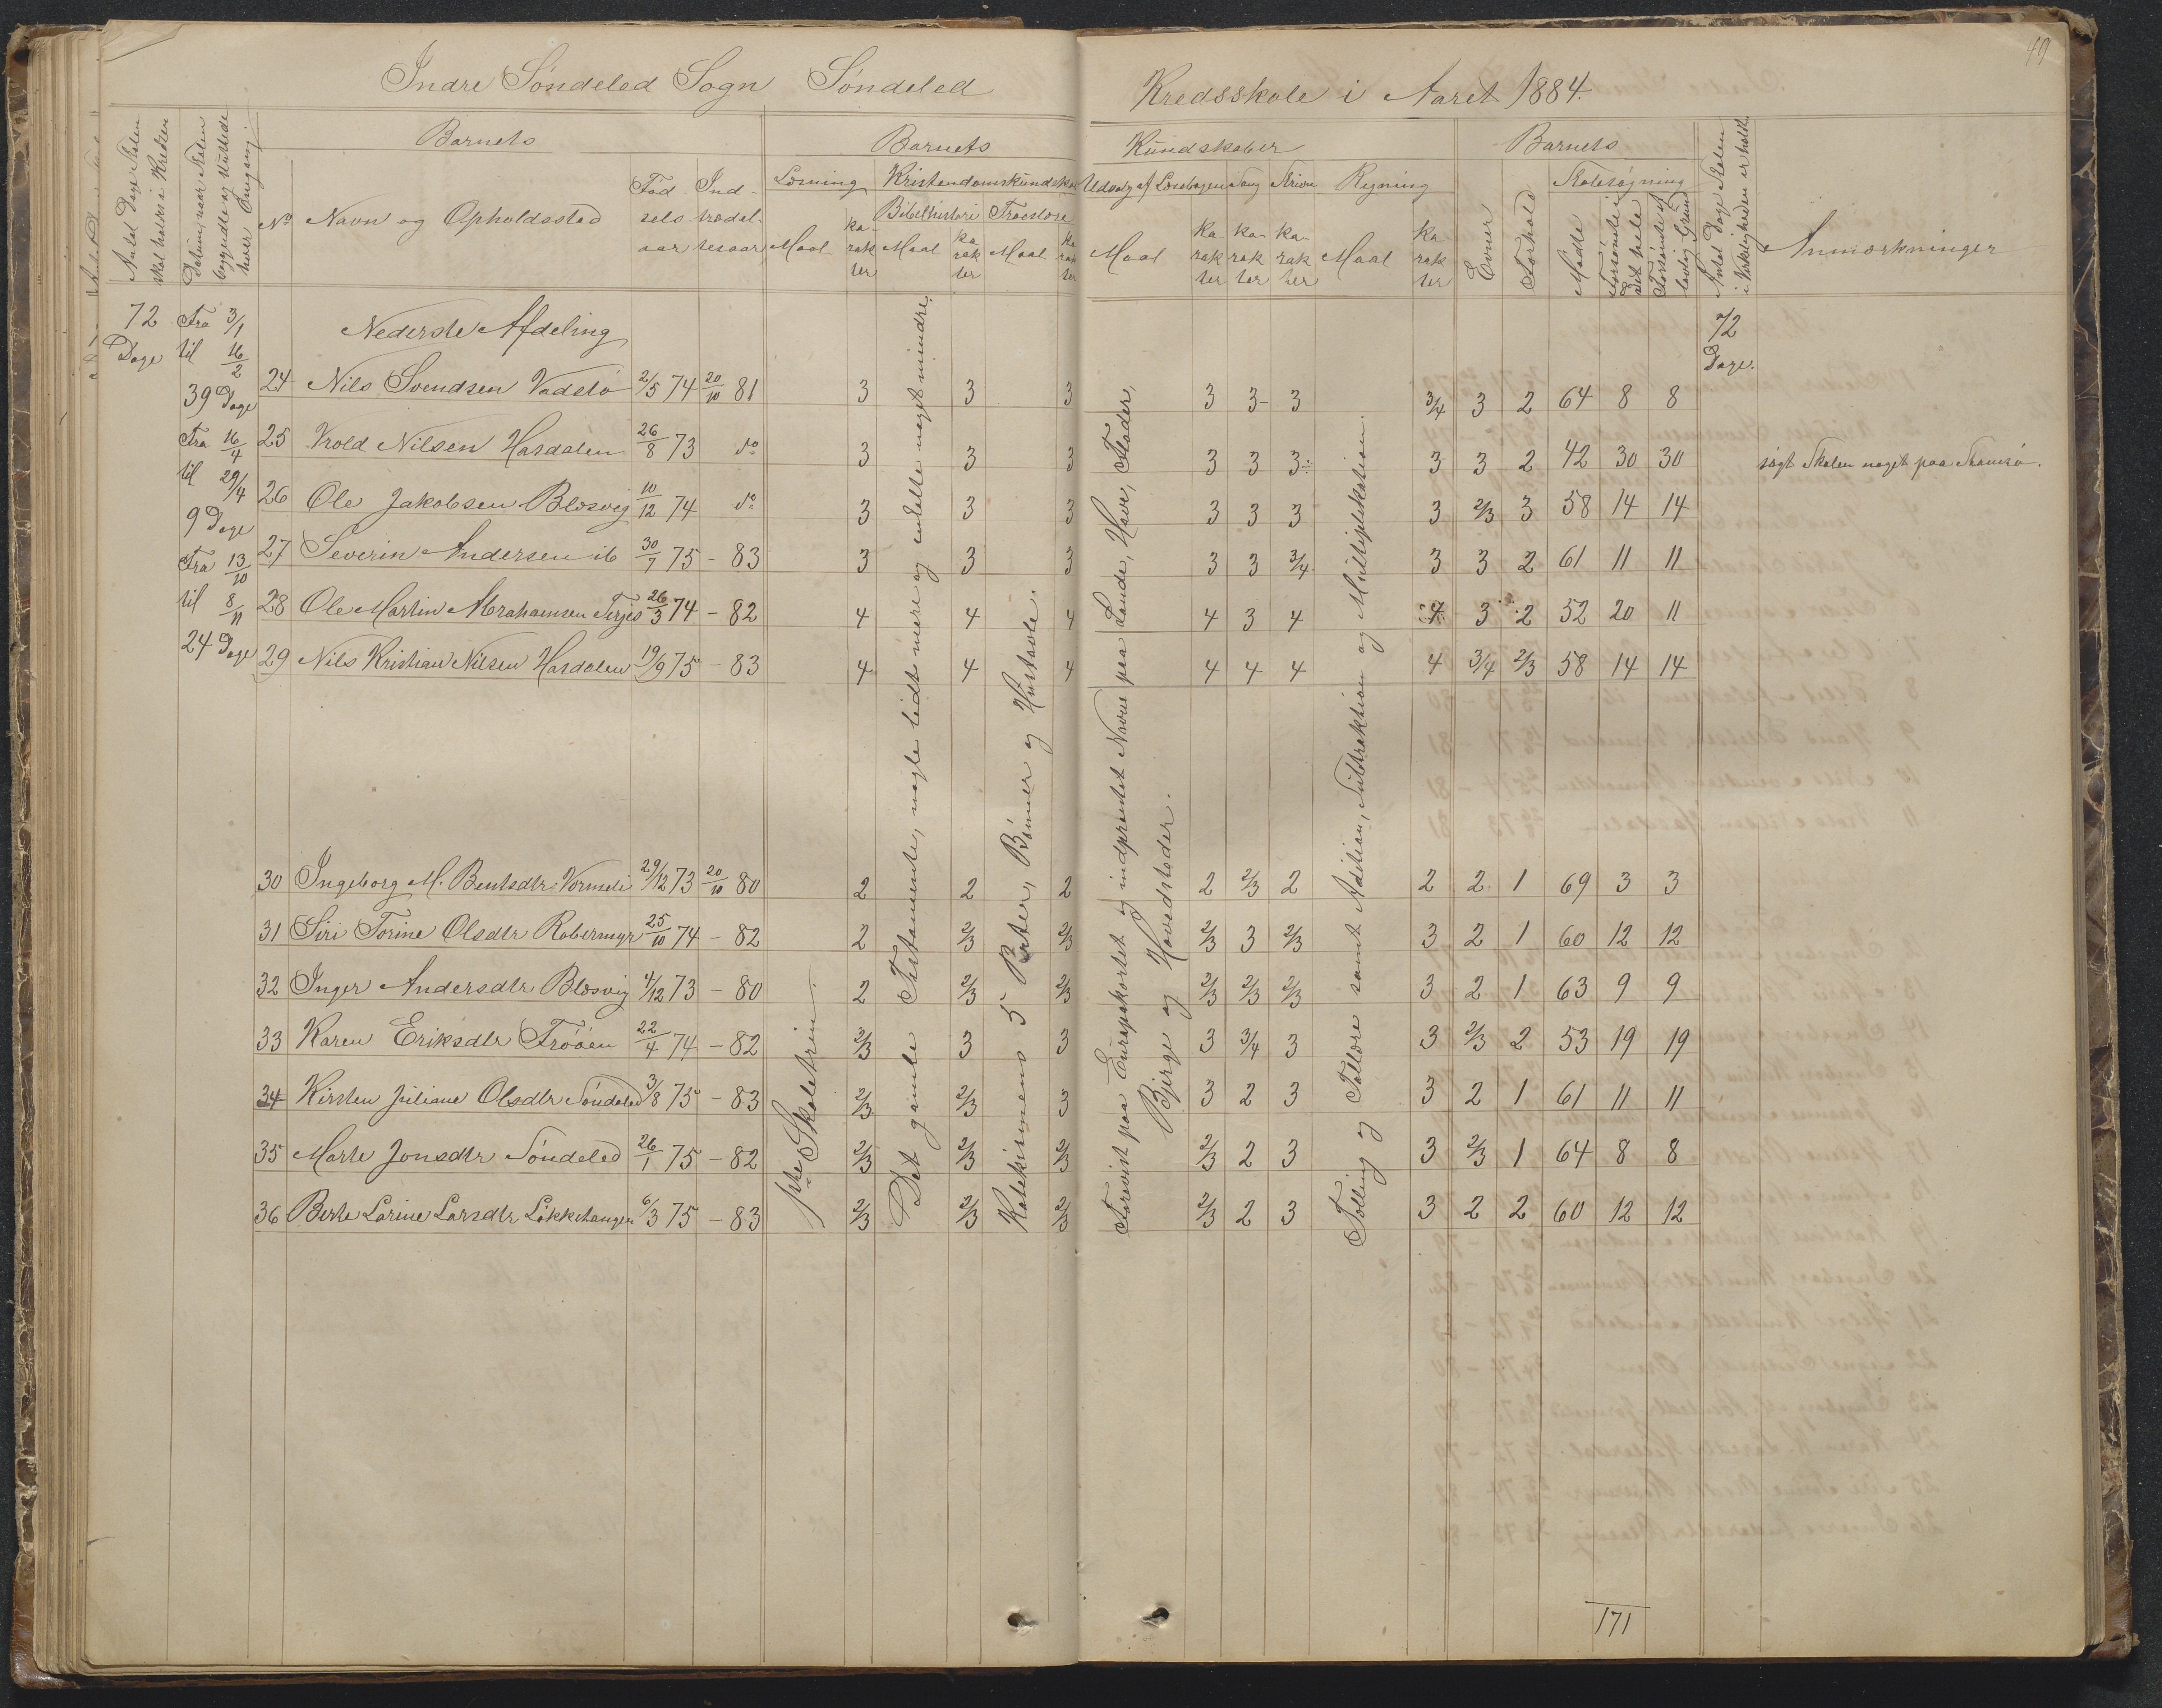 Indre Söndeled Sogn Söndeled Kredsskole i Aaret 1884.
49
Antal Dage Skolen skal holdes i Kredsen
Datum, naar Skolen begyndte og sluttede hver Gang
Barnets
Barnets Kundskaber
Barnets
Antal Dage Skolen i Virkeligheden er holdt
Anmærkninger
No Navn og Opholdssted Fødselsaar Indtrædelsesaar
Læsning Kristendomskundskab Udvalg af Læsebogen Sang Skrivn Regning
Bibelhistorie Troeslære
Maal Karakter Maal Karakter Maal Karakter
Maal Karakter Karakter Karakter Maal Karakter
Evner Forhold
Skolesøgning
Mødte Forsømte i det hele Forsømte af lovlig Grund
72 Dage
Fra 3/1 til 16/2 39 Dage
Fra 16/4 til 29/4 9 Dage
Fra 13/10 til 8/11 24 Dage
Nederste Afdeling
72 Dage.
24 Nils Svendsen Vadstö 2/5 74 20/10 81 3 3 3 3 3- 3 3/4 3 2 64 8 8
25 Vrold Nilsen Hasdalen 26/8 73 do 3 3 3 3 3 3÷ 3 3 2 42 30 30 søgt Skolen noget paa
26 Ole Jakobsen Blæsvig 10/12 74 do 3 3 3 3 3 3 3 2/3 3 58 14 14
27 Severin Andersen ib 30/7 75 - 83 3 3 3 3 3 3/4 3 3 2 61 11 11
28 Ole Martin Abrahamsen Terjes 26/3 74 - 82 4 4 4 4 3 4 4 3 2 52 20 11
29 Nils Kristian Nilsen Hasdalen 19/9 75 - 83 4 4 4 4 4 4 4 3/4 2/3 58 14 14
30 Ingeborg M. Bentsdtr Vormeli 29/12 73 20/10 80 2 2 2 2 2/3 2 2 2 1 69 3 3
31 Siri Torine Olsdtr Robermyr 25/10 74 - 82 2 2/3 2/3 2/3 3 2/3 3 2 1 60 12 12
32 Inger Andersdtr Blæsvig 4/12 73 - 80 2 2/3 2/3 2/3 2/3 2/3 3 2 1 63 9 9
33 Karen Eriksdtr Tröåen 22/4 74 - 82 2/3 3 3 3 3/4 3 3 2/3 2 53 19 19
34 Kirsten Juliane Olsdtr Söndeled 3/8 75 - 83 2/3 2/3 3 3 2 3 3 2 1 61 11 11
35 Marte Jonsdtr Söndeled 26/1 75 - 82 2/3 2/3 2/3 2/3 2 3 3 2/3 1 64 8 8
36 Berte Lorine Larsdtr Lökketangen 6/3 75 - 83 2/3 2/3 2/3 2/3 2 3 3 2 2 60 12 12
1ste Skoletrin.
Det gamle Testamente, nogle lidt mere og enkelte noget mindre.
Katekismens 5 Parter, Bönner og Hustavle.
Forevist paa Europakortet og indprentet Navne paa Lande, Have, Floder,
Bjerge og Hovedstæder.
Tælling og Tallære samt Adition, Subtraktion og Multiplikation.
171